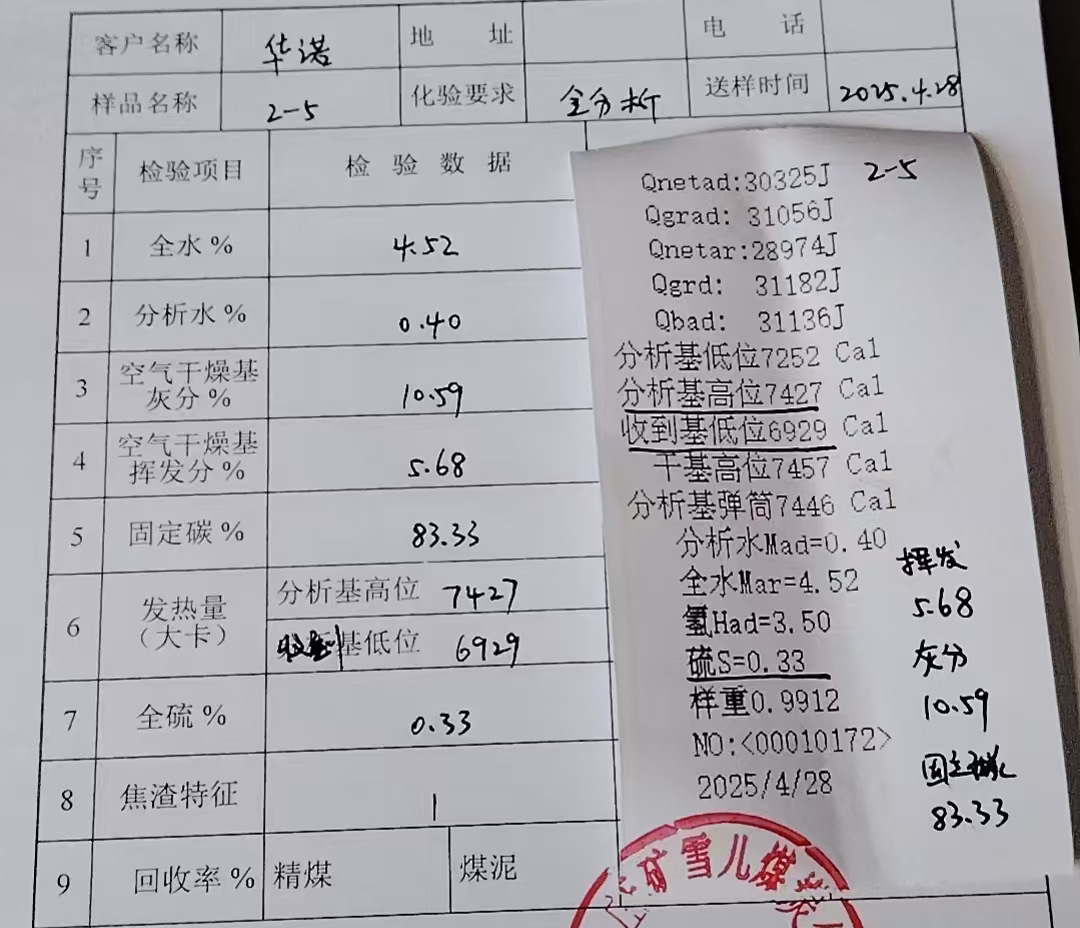 客户名称 华诺 地 址 电 话
样品名称 2-5 化验要求 全分析 送样时间 2025.4.28
序号 检验项目 检 验 数 据
1 全水% 4.52
2 分析水% 0.40
3 空气干燥基灰分% 10.59
4 空气干燥基挥发分% 5.68
5 固定碳% 83.33
6 发热量(大卡) 分析基高位 7427
收到基低位 6929
7 全硫% 0.33
8 焦渣特征 1
9 回收率% 精煤 煤泥
Qnetad:30325J 2-5
Qgrad: 31056J
Qnetar:28974J
Qgrd: 31182J
Qbad: 31136J
分析基低位7252 Cal
分析基高位7427 Cal
收到基低位6929 Cal
干基高位7457 Cal
分析基弹筒7446 Cal
分析水Mad=0.40
全水Mar=4.52
氢Had=3.50
硫S=0.33
样重0.9912
NO:<00010172>
2025/4/28
挥发
5.68
灰分
10.59
固定碳
83.33
矿雪儿煤